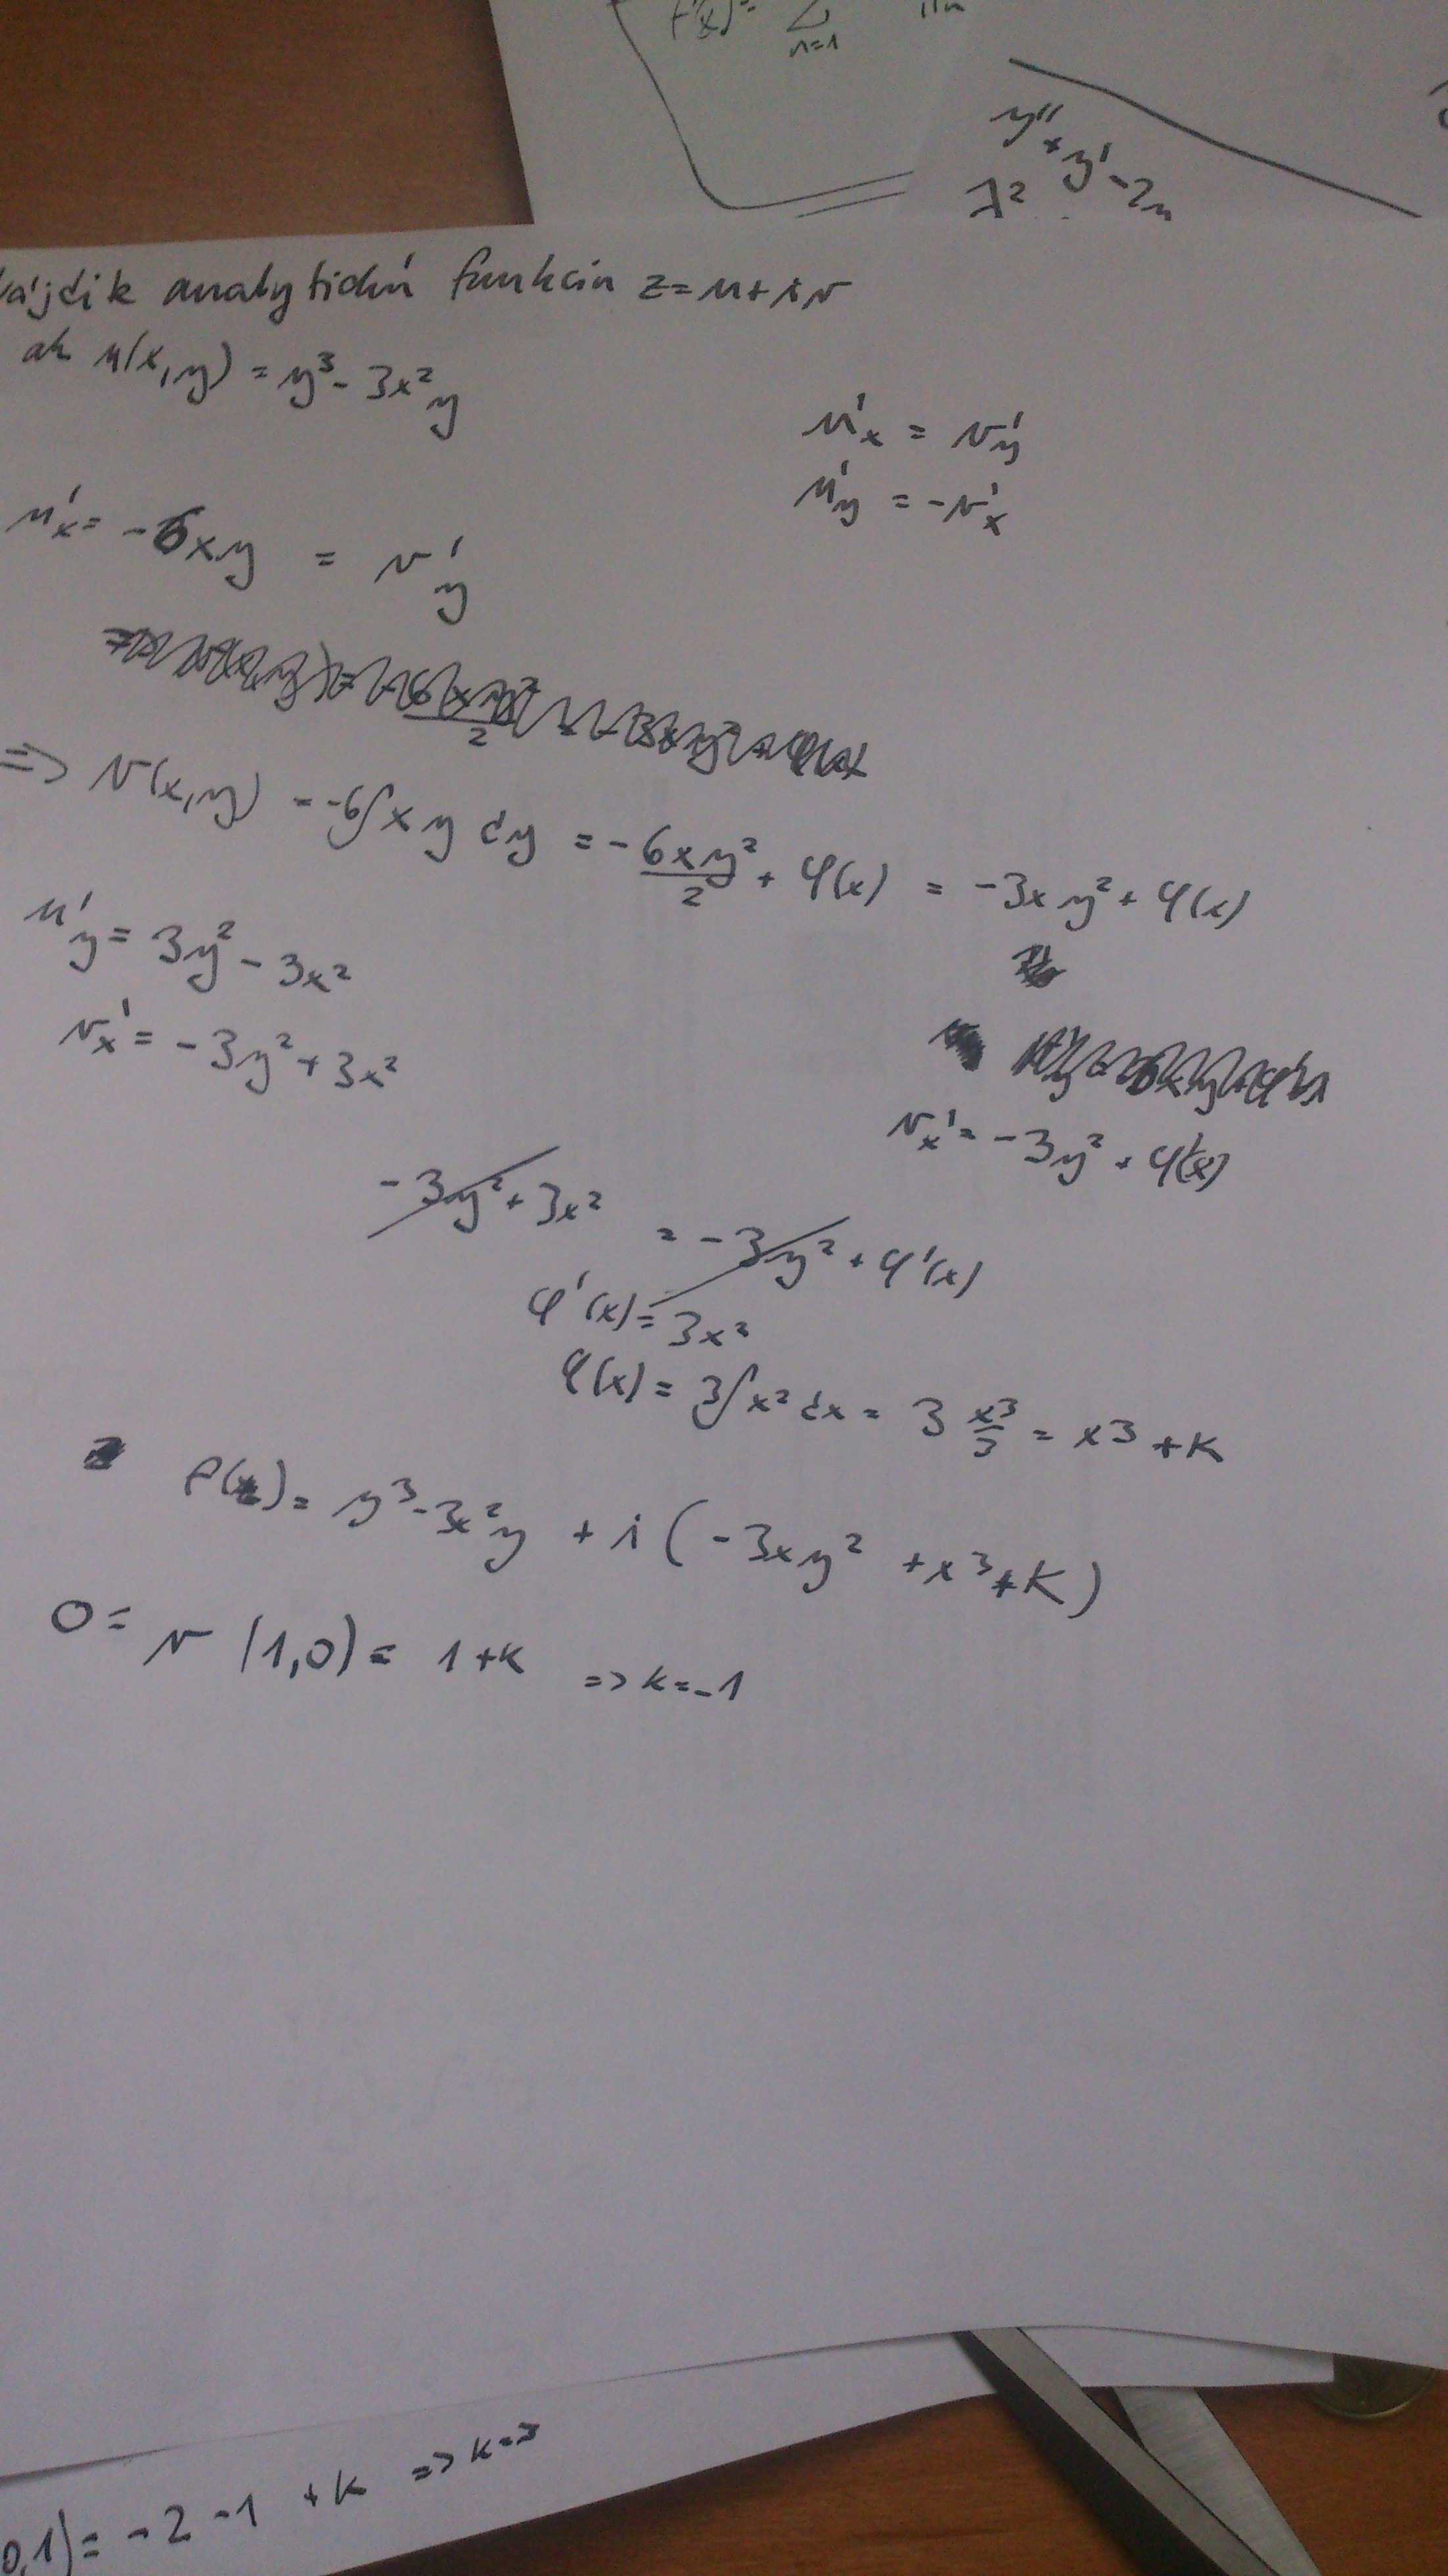 f(x)= Σ
n=1
y''+y'-2y
λ²
analytickú funkciu z=u+iv
ak u(x,y) = y³- 3x²y
u'x = v'y
u'y = -v'x
u'x= -6xy = v'y
=> v(x,y) = -6∫xy dy = -6xy²/2 + φ(x) = -3xy²+ φ(x)
u'y= 3y² - 3x²
vx'= -3y²+3x²
vx'= -3y² + φ'(x)
-3y²+3x² = -3y² + φ'(x)
φ'(x)= 3x²
φ(x)= 3∫x²dx = 3 x³/3 = x³+K
f(z)= y³-3x²y + i(-3xy² +x³+K)
0= v (1,0)= 1+K => k=-1
0,1)= -2 -1 +k => k=3